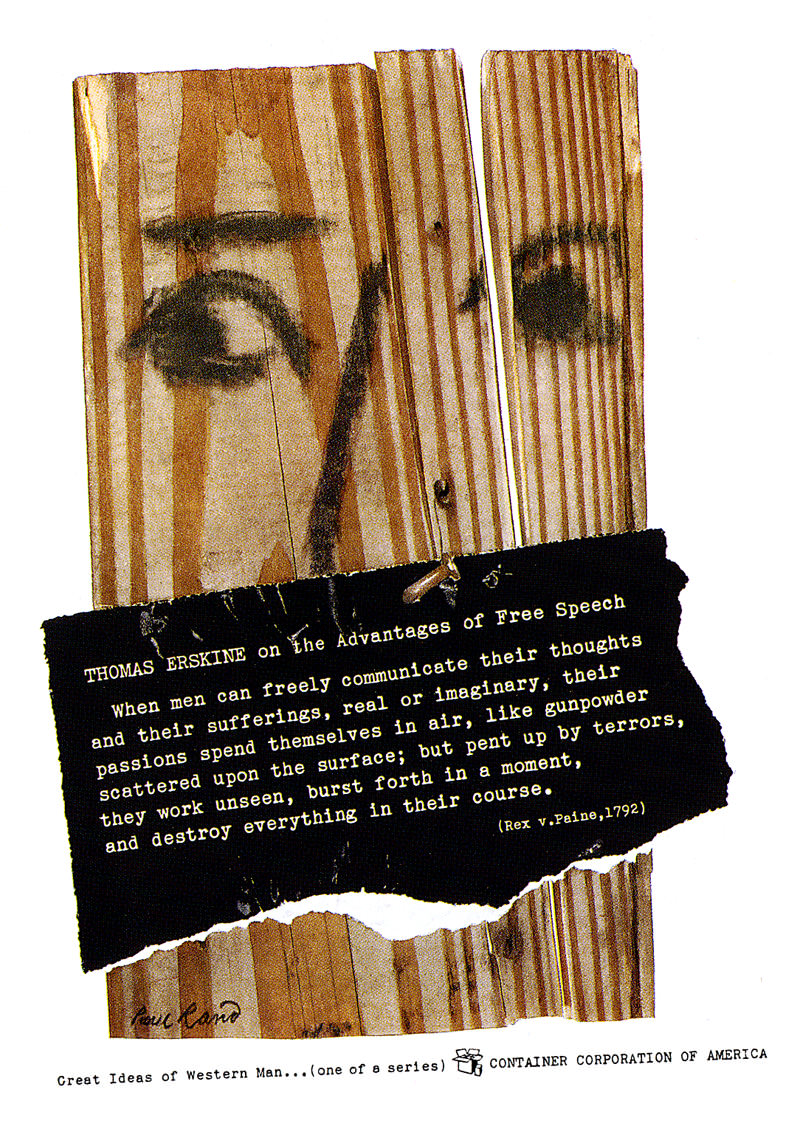 THOMAS ERSKINE on the Advantages of Free Speech
When men can freely communicate their thoughts
and their sufferings, real or imaginary, their
passions spend themselves in air, like gunpowder
scattered upon the surface; but pent up by terrors,
they work unseen, burst forth in a moment,
and destroy everything in their course.
(Rex v.Paine,1792)
Paul Rand
Great Ideas of Western Man...(one of a series) CONTAINER CORPORATION OF AMERICA